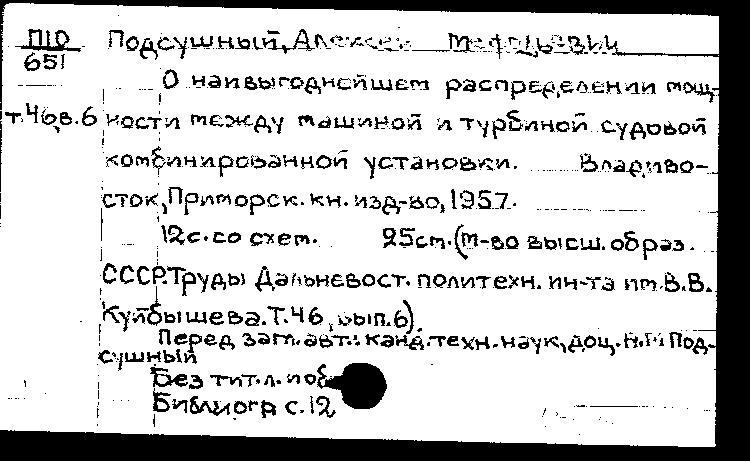 П10 Подсушный, Алексей
651
О наивыгоднейшем распределении мощ-
т.46,в.6 ности между машиной и турбиной судовой
комбинированной установки. Владиво-
сток, Приморск. кн. изд-во, 1957.
12с. со схем. 25см. (М-во высш. образ.
СССР. Труды Дальневост. политехн. ин-та им. В.В.
Куйбышева. Т.46, вып.6).
Перед загл. авт.: канд. техн. наук, доц. Под-
сушный
Без тит. л. и об
Библиогр с. 12